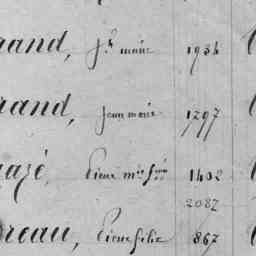 rand, Jh marie 1934
rand, Jean marie 1297
azé, Pierre m 1402
2087
reau, Pierre félix 867